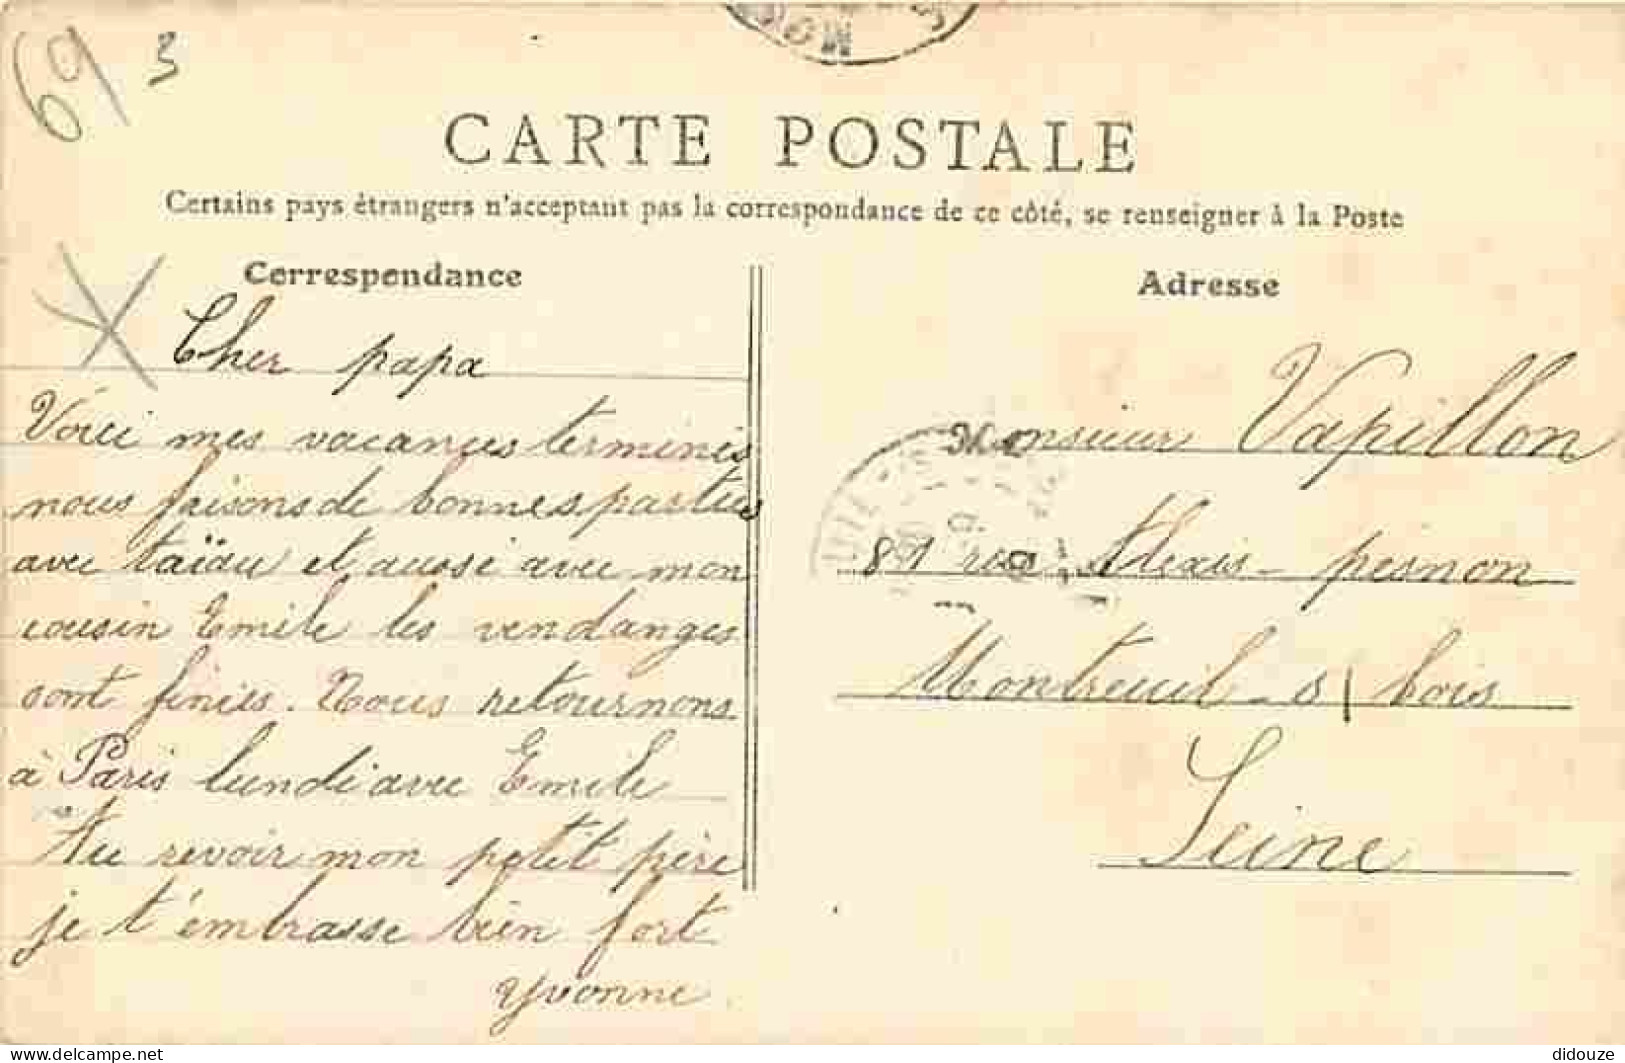 69 3
CARTE POSTALE
Certains pays étrangers n'acceptent pas la correspondance de ce côté, se renseigner à la Poste
Correspondance
Cher papa
Voici mes vacances terminés
nous faisons de bonnes parties
avec taïau et aussi avec mon
cousin Emile les vendanges
sont finies. Nous retournons
à Paris lundi avec Emile
Au revoir mon petit père
je t'embrasse bien fort
Yvonne
Adresse
Monsieur Vapillon
81 rue Alexis pesnon
Montreuil s/ bois
Seine
delcampe.net
didouze